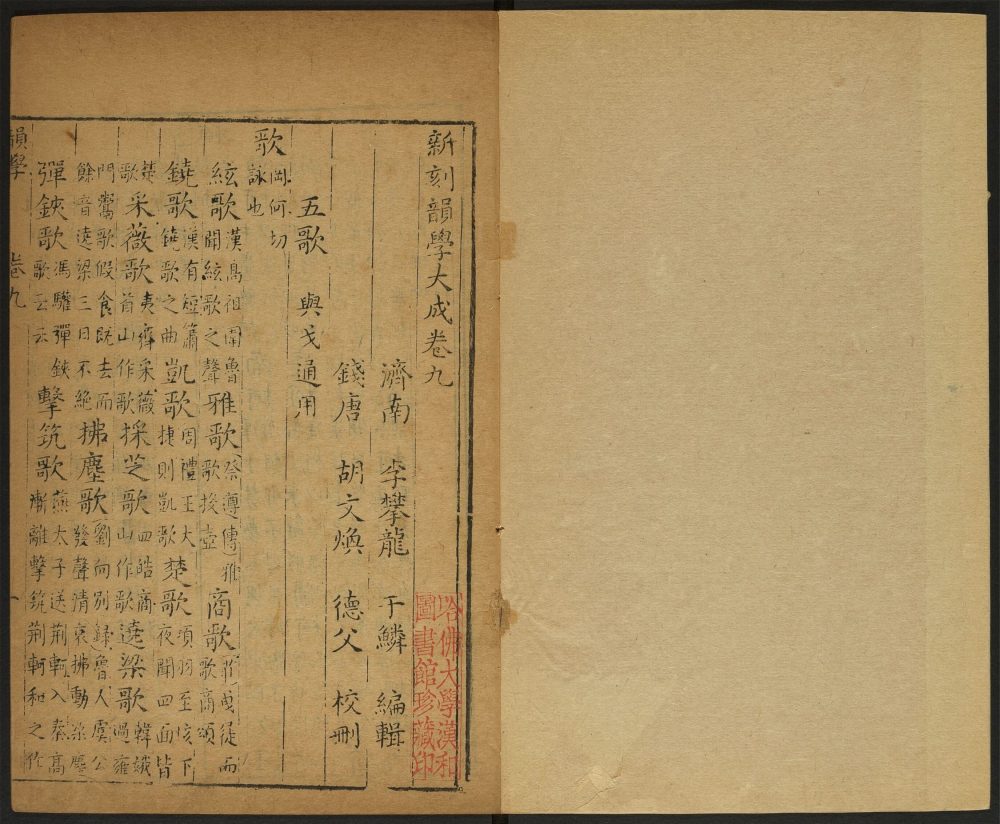 新刻韻學大成卷九
濟南 李攀龍 于鱗 編輯
錢唐 胡文煥 德父 校刪
五歌 與戈通用
歌 岡何切詠也
絃歌 漢高祖圍魯聞絃歌之聲 雅歌 祭遵傳雅歌投壺 商歌 甯戚徒而歌商頌
鐃歌 漢有短簫鐃歌之曲 凱歌 周禮王大捷則凱歌 楚歌 項羽至垓下夜聞四面皆
楚歌 采薇歌 夷齊采薇首山作歌 採芝歌 四皓商山作歌 遶梁歌 韓娥過雍
門鬻歌假食既去而餘音遶梁三日不絶 拂塵歌 劉向別録魯人虞公發聲清哀拂動梁塵
彈鋏歌 馮驩彈鋏歌云云 擊筑歌 燕太子送荆軻入秦高漸離擊筑荆軻和之作
韻學 卷九 一
哈佛大學漢和圖書館珍藏印